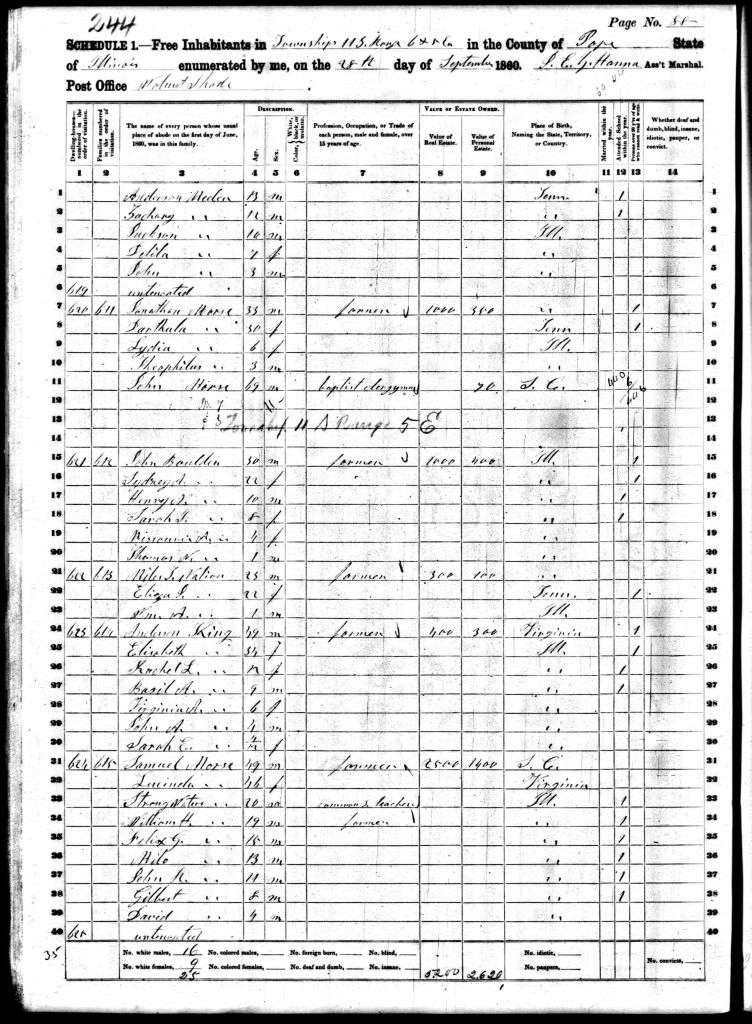 244
Page No. 85
SCHEDULE 1.—Free Inhabitants in Township 11 S. Range 6 & 5 E in the County of Pope State
of Illinois enumerated by me, on the 28th day of September 1860. L. E. G. Hanna Ass't Marshal.
Post Office Walnut Shade
DESCRIPTION. VALUE OF ESTATE OWNED.
Dwelling-houses—numbered in the order of visitation. Families numbered in the order of visitation. The name of every person whose usual place of abode on the first day of June, 1860, was in this family. Age. Sex. Color, White, black, or mulatto. Profession, Occupation, or Trade of each person, male and female, over 15 years of age. Value of Real Estate. Value of Personal Estate. Place of Birth, Naming the State, Territory, or Country. Married within the year. Attended School within the year. Persons over 20 y'rs of age who cannot read & write. Whether deaf and dumb, blind, insane, idiotic, pauper, or convict.
1 2 3 4 5 6 7 8 9 10 11 12 13 14
1 Anderson 13 m Tenn. 1 1
2 Zachary " " 12 m " " 1 2
3 Jackson " " 10 m Ill. 3
4 Delila " " 7 f " " 4
5 John " " 3 m " " 5
6 619 6
7 620 611 Jonathan Morse 33 m farmer 1000 " " 1 7
8 " " 30 f Tenn 1 8
9 Lydia " " 6 f Ill. 9
10 Theophilus " " 3 m " " 10
11 John Morse 69 m baptist clergyman 70 S. Co. 11
12 12
13 Township 11 S Range 5 E 13
14 14
15 621 612 John Boulden 30 m farmer 1000 400 Ill. 1 15
16 " " 22 f " " 1 16
17 Henry A. " " 10 m " " 1 17
18 Sarah J. " " 8 f " " 1 18
19 " " 4 f " " 19
20 Thomas " " 1 m " " 20
21 622 613 Miles Nation 25 m farmer 300 100 " " 21
22 Eliza " " 22 f Tenn. 1 22
23 Wm. A. " " 1 m Ill. 23
24 623 614 Anderson King 49 m farmer 400 300 Virginia 1 24
25 Elizabeth " " 34 f Ill. 1 25
26 Rachel L. " " 12 f " " 1 26
27 Basil A. " " 9 m " " 1 27
28 Virginia A. " " 6 f " " 28
29 John A. " " 4 m " " 29
30 Sarah E. " " f " " 30
31 624 615 Samuel Morse 49 m farmer 2500 1400 S. Co. 31
32 Lucinda " " 46 f Virginia 32
33 " " 20 m common s. teacher Ill. 1 33
34 William H. " " 19 m farmer " " 1 34
35 Felix G. " " 15 m " " 1 35
36 Milo " " 13 m " " 1 36
37 John " " 11 m " " 1 37
38 Gilbert " " 8 m " " 1 38
39 David " " 4 m " " 39
40 625 40
35
No. white males, 16 No. colored males, No. foreign born, No. blind, No. idiotic,
No. white females, 9 No. colored females, No. deaf and dumb, No. insane, 5200 2620 No. paupers, No. convicts,
25